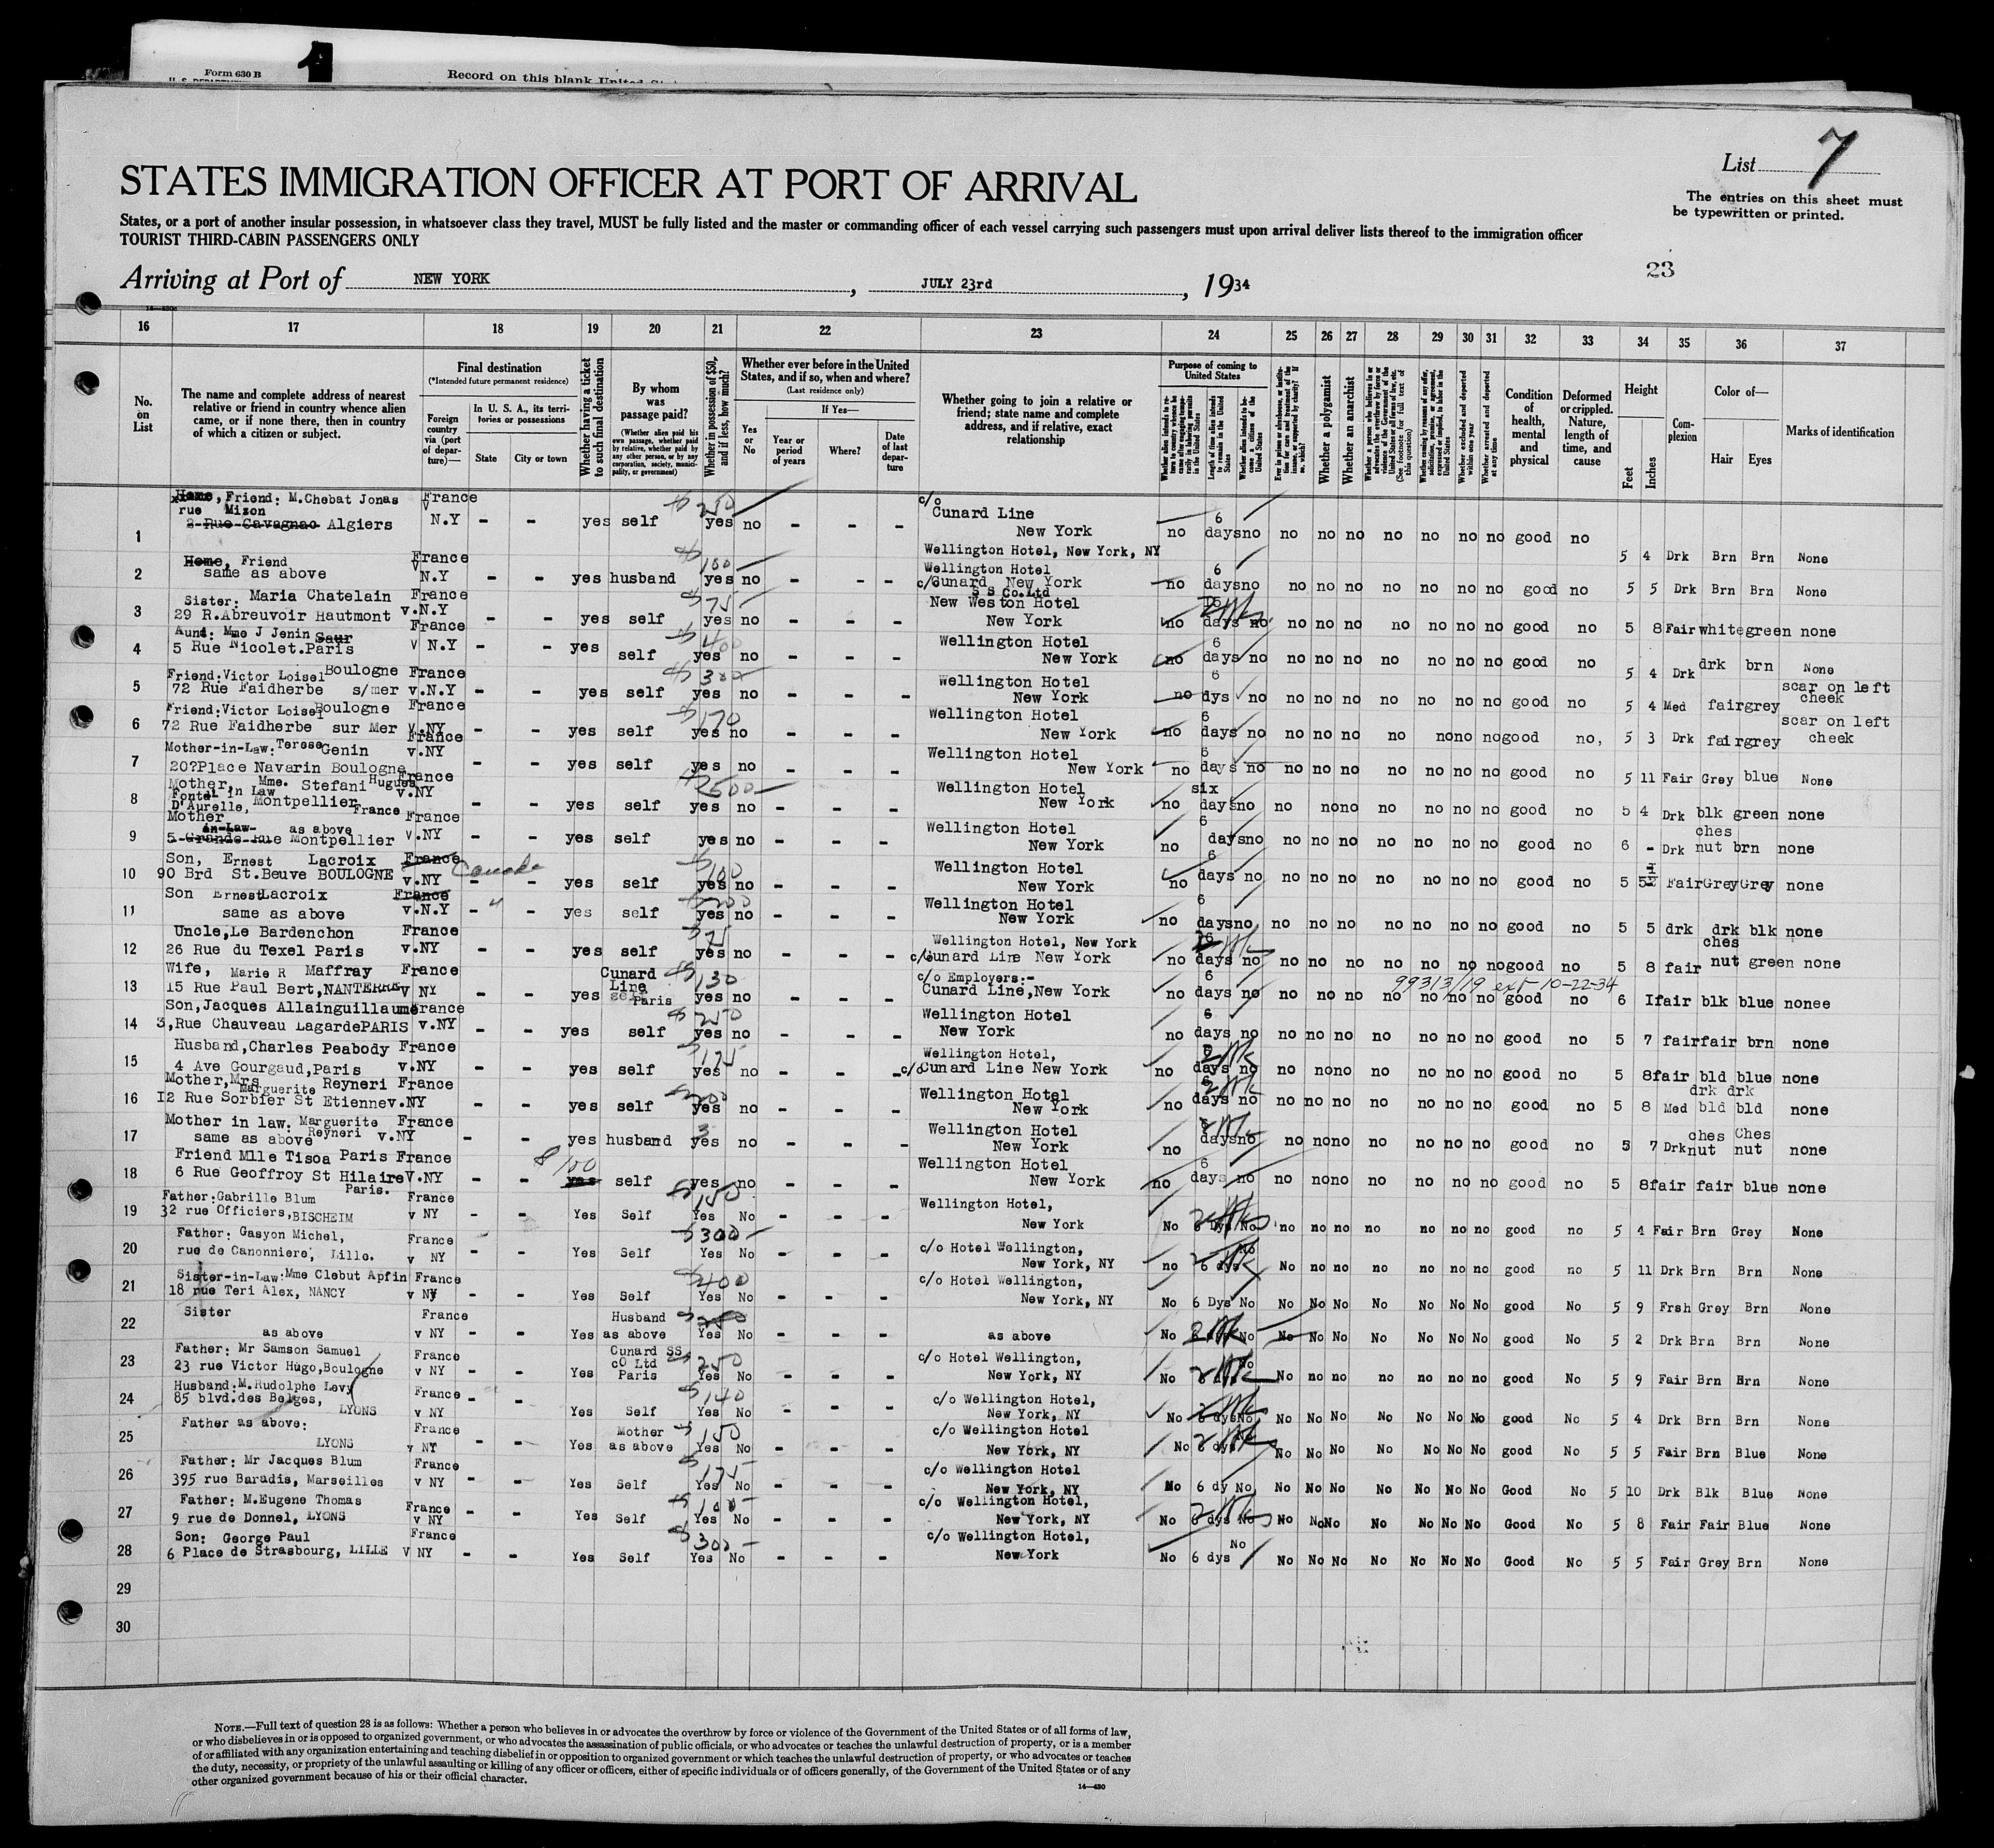 Form 630 B
Record on this blank United
1
List 7
STATES IMMIGRATION OFFICER AT PORT OF ARRIVAL
The entries on this sheet must
be typewritten or printed.
States, or a port of another insular possession, in whatsoever class they travel, MUST be fully listed and the master or commanding officer of each vessel carrying such passengers must upon arrival deliver lists thereof to the immigration officer
TOURIST THIRD-CABIN PASSENGERS ONLY
23
Arriving at Port of NEW YORK, JULY 23rd, 1934
16 17 18 19 20 21 22 23 24 25 26 27 28 29 30 31 32 33 34 35 36 37
No. on List
The name and complete address of nearest relative or friend in country whence alien came, or if none there, then in country of which a citizen or subject.
Final destination
(*Intended future permanent residence)
Foreign country via (port of departure)—
In U. S. A., its territories or possessions
State
City or town
Whether having a ticket to such final destination
By whom was passage paid?
(Whether alien paid his own passage, whether paid by relative, whether paid by any other person, or by any corporation, society, municipality, or government)
Whether in possession of $50, and if less, how much?
Whether ever before in the United States, and if so, when and where?
(Last residence only)
Yes or No
If Yes—
Year or period of years
Where?
Date of last departure
Whether going to join a relative or friend; state name and complete address, and if relative, exact relationship
Purpose of coming to United States
Length of time alien intends to remain in the United States
Whether alien intends to become a citizen of the United States
Whether a polygamist
Whether an anarchist
Whether excluded and deported within one year
Whether arrested and deported at any time
Condition of health, mental and physical
Deformed or crippled. Nature, length of time, and cause
Height
Feet
Inches
Complexion
Color of—
Hair
Eyes
Marks of identification
Home, Friend: M.Chebat Jonas France $250 c/o
rue Mizon Cunard Line 6
1 2 Rue Cavagnac Algiers N.Y - - yes self yes no - - - New York no days no no no no no no no no good no
Wellington Hotel, New York, NY 5 4 Drk Brn Brn None
Home, Friend France $100 Wellington Hotel 6
2 same as above N.Y - - yes husband yes no - - - c/o Cunard New York no days no no no no no no no no good no 5 5 Drk Brn Brn None
S S Co.Ltd
Sister: Maria Chatelain France $75 New Weston Hotel
3 29 R.Abreuvoir Hautmont v.N.Y - - yes self yes no - - - New York no days no no no no no no no no good no 5 8 Fair white green none
Aunt: Mme J Jenin Saur France $400 Wellington Hotel 6
4 5 Rue Nicolet.Paris v N.Y - - yes self yes no - - - New York no days no no no no no no no no good no 5 4 Drk drk brn None
Friend:Victor Loisel Boulogne France $300 Wellington Hotel 6
5 72 Rue Faidherbe s/mer v.N.Y - - yes self yes no - - - New York no dys no no no no no no no no good no 5 4 Med fair grey scar on left cheek
Friend:Victor Loisel Boulogne France $170 Wellington Hotel 6
6 72 Rue Faidherbe sur Mer v.NY - - yes self yes no - - - New York no days no no no no no no no no good no, 5 3 Drk fair grey scar on left cheek
Mother-in-Law: Terese Genin France Wellington Hotel 6
7 20?Place Navarin Boulogne v.NY - - yes self yes no - - - New York no days no no no no no no no no good no 5 11 Fair Grey blue None
Mother, in Law Mme. Stefani Hugues France $2500 Wellington Hotel six
8 D'Aurelle, Montpellier France v.NY - - yes self yes no - - - New York no days no no no no no no no no good no 5 4 Drk blk green none
Mother in-Law as above France Wellington Hotel 6
9 5 Grande Rue Montpellier v.NY - - yes self yes no - - - New York days no no no no no no no no good no 6 - Drk ches nut brn none
Son, Ernest Lacroix France Canada $100 Wellington Hotel 6
10 90 Brd St.Beuve BOULOGNE v.NY - - yes self yes no - - - New York no days no no no no no no no no good no 5 Fair Grey Grey none
Son Ernest Lacroix France $200 Wellington Hotel 6
11 same as above v.N.Y - - yes self yes no - - - New York no days no no no no no no no no good no 5 5 drk drk blk none
Uncle,Le Bardenchon France $75 Wellington Hotel, New York
12 26 Rue du Texel Paris v.NY - - yes self yes no - - - c/o Cunard Line New York no days no no no no no no no no good no 5 8 fair ches nut green none
Wife, Marie R Maffray France Cunard Line $130 c/o Employers:- 6 99313/19 ext 10-22-34
13 15 Rue Paul Bert,NANTERRE v NY - - yes self Paris yes no - - - Cunard Line,New York no days no no no no no no no no good no 6 I fair blk blue nonee
Son,Jacques Allainguillaume France $250 Wellington Hotel 6
14 3,Rue Chauveau Lagarde PARIS v.NY - - yes self yes no - - - New York no days no no no no no no no no good no 5 7 fair fair brn none
Husband,Charles Peabody France $175 Wellington Hotel,
15 4 Ave Gourgaud,Paris v.NY - - yes self yes no - - - c/o Cunard Line New York no days no no no no no no no no good no 5 8 fair bld blue none
Mother,Mrs Marguerite Reyneri France $200 Wellington Hotel
16 I2 Rue Sorbier St Etienne v.NY - - yes self yes no - - - New York no days no no no no no no no no good no 5 8 Med drk bld drk bld none
Mother in law: Marguerite Reyneri France Wellington Hotel
17 same as above v.NY - - yes husband yes no - - - New York no days no no no no no no no no good no 5 7 Drk ches nut Ches nut none
Friend Mlle Tisoa Paris France $100 Wellington Hotel 6
18 6 Rue Geoffroy St Hilaire Paris. V.NY - - yes self yes no - - - New York no days no no no no no no no no good no 5 8 fair fair blue none
Father:Gabrille Blum France $150 Wellington Hotel,
19 32 rue Officiers,BISCHEIM v NY - - Yes Self Yes No - - - New York No 6 Dys No no no no no no no no good no 5 4 Fair Brn Grey None
Father: Gasyon Michel, France $300 c/o Hotel Wellington,
20 rue de Canonniere, Lille. v NY - - Yes Self Yes No - - - New York, NY no 6 dys No No no no no no no no good no 5 11 Drk Brn Brn None
Sister-in-Law:Mme Clebut Apfin France $400 c/o Hotel Wellington,
21 18 rue Teri Alex, NANCY v NY - - Yes Self Yes No - - - New York, NY No 6 Dys No No No No No No No No good No 5 9 Frsh Grey Brn None
Sister France Husband
22 as above v NY - - Yes as above Yes No - - - as above No No No No No No No No No good No 5 2 Drk Brn Brn None
Father: Mr Samson Samuel France Cunard SS cO Ltd $250 c/o Hotel Wellington,
23 23 rue Victor Hugo,Boulogne v NY - - Yes Paris Yes No - - - New York, NY No No No no no no no no no good No 5 9 Fair Brn Brn None
Husband:M.Rudolphe Levy France $140 c/o Wellington Hotel,
24 85 blvd.des Belges, LYONS v NY - - Yes Self Yes No - - - New York, NY No 6 dys No No No No No No No No good No 5 4 Drk Brn Brn None
Father as above: France Mother $150 c/o Wellington Hotel
25 LYONS v NY - - Yes as above Yes No - - - New York, NY No 6 dys No No No No No No No good No 5 5 Fair Brn Blue None
Father: Mr Jacques Blum France $175 c/o Wellington Hotel
26 395 rue Baradis, Marseilles v NY - - Yes Self Yes No - - - New York, NY No 6 dy No No No No No No No No Good No 5 10 Drk Blk Blue None
Father: M.Eugene Thomas France $100 c/o Wellington Hotel,
27 9 rue de Donnel, LYONS v NY - - Yes Self Yes No - - - New York, NY No 6 dys No No No No No No No No Good No 5 8 Fair Fair Blue None
Son: George Paul France $300 c/o Wellington Hotel,
28 6 Place de Strasbourg, LILLE V NY - - Yes Self Yes No - - - New York No 6 dys No No No No No No No No Good No 5 5 Fair Grey Brn None
29
30
NOTE.—Full text of question 28 is as follows: Whether a person who believes in or advocates the overthrow by force or violence of the Government of the United States or of all forms of law,
or who disbelieves in or is opposed to organized government, or who advocates the assassination of public officials, or who advocates or teaches the unlawful destruction of property, or is a member
of or affiliated with any organization entertaining and teaching disbelief in or opposition to organized government or which teaches the unlawful destruction of property, or who advocates or teaches
the duty, necessity, or propriety of the unlawful assaulting or killing of any officer or officers, either of specific individuals or of officers generally, of the Government of the United States or of any
other organized government because of his or their official character.
14—430